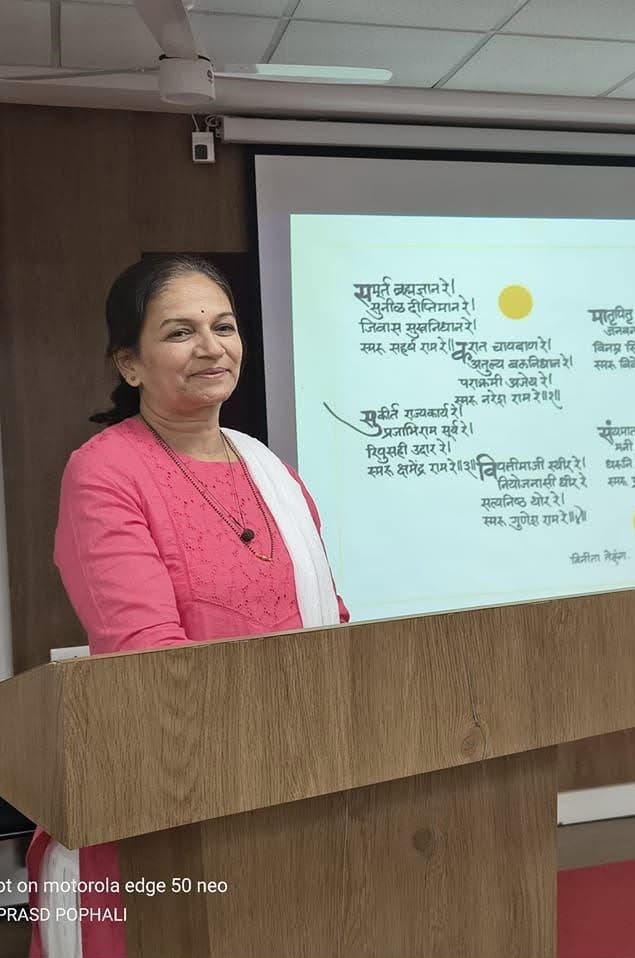 सपूर्त ब्रह्मज्ञान रे।
सुनीळ दीप्तिमान रे।
निवास सुखनिधान रे।
स्मरू सहर्ष राम रे॥
करात चापबाण रे।
अतुल्य बलनिधान रे।
पराक्रमी अजेय रे।
स्मरू नरेश राम रे॥२॥
सुकीर्त राज्यकार्य रे।
प्रजाभिराम सूर्य रे।
रिपुसही उदार रे।
स्मरू क्षमेंद्र राम रे॥३॥
विपत्तीमाजी स्थीर रे।
नियोजनासी धीर रे।
सत्यनिष्ठ थोर रे।
स्मरू गुणेश राम रे॥४॥
मातृपितृ
विनम्र
स्मरू
मनी
स्मरू
विनीता तेलंग
on motorola edge 50 neo
PRASD POPHALI